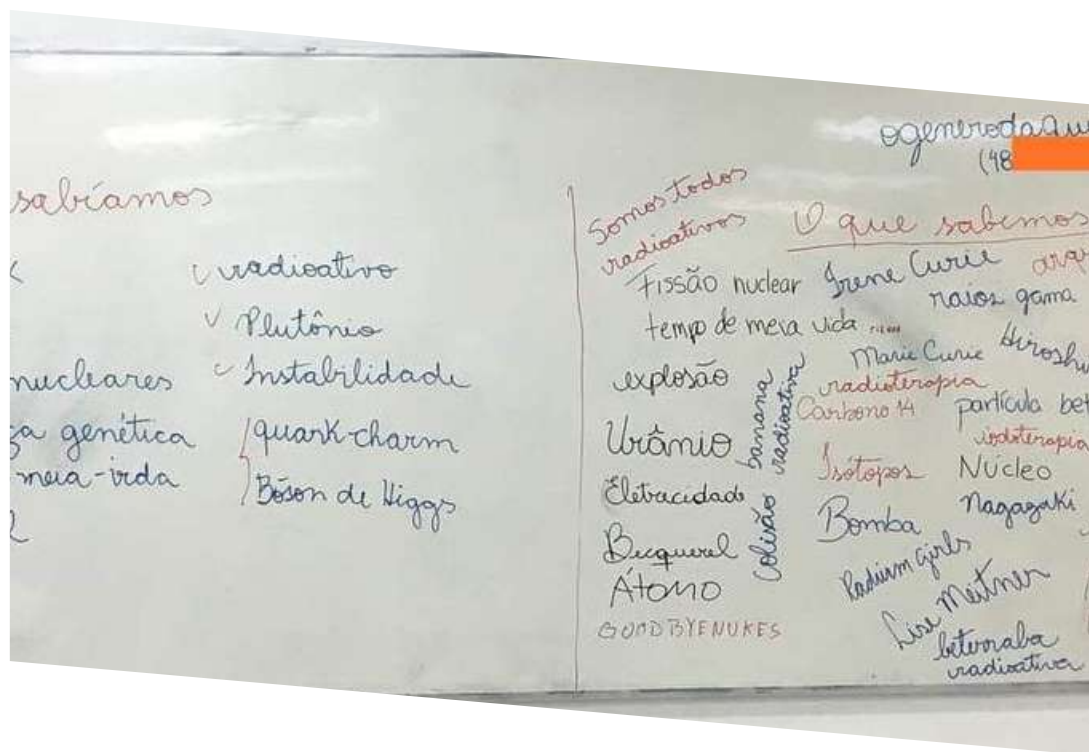 sabíamos
radioativo
Plutônio
nucleares
Instabilidade
genética
quark-charm
meia-vida
Bóson de Higgs
ogeneroda
(48
Somos todos
radioativos
O que sabemos
Fissão nuclear
Irene Curie
raios gama
tempo de meia vida .....
Marie Curie
explosão
radioterapia
banana
radioativa
Carbono 14
partícula
Urânio
iodoterapia
Isótopos
Núcleo
Eletracidade
colisão
Bomba
Nagazaki
Becquerel
Radium girls
Átomo
Lise Meitner
GOODBYENUKES
beterraba
radioativa